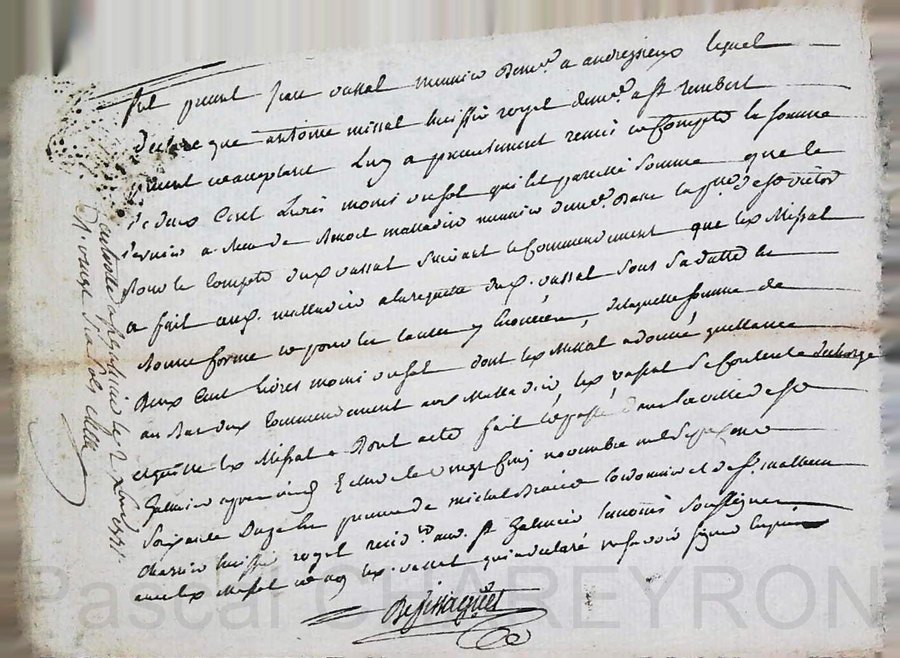 fut present Jean vassal meunier demt. a andrezieux lequel
declare que antoine missal huissier royal demt. a st rembert
present acceptant Luy a presentement remis et Compté la somme
de deux Cent Livres moins un sol qui est pareille Somme que le
dernier a Receu de Benoit malladier meunier demt. dans la p
pour le Compte dud vassal suivant le Commandement que led Missal
a fait aud. malladier a la requette dud. vassal sous sa datte en
bonne forme et pour les causes y enoncées, de laquelle somme de
deux Cent livres moins un sol dont led Missal a donné quittance
au Bas dud Commandement aud Malladier, led vassal Se Contente decharge
et quitte led Missal Dont acte fait et passé dans la ville de st
Galmier apres midy le vingt Cinq novembre mil Sept Cent
Soixante Dix presence de michel cordonnier et de sr. mathieu
huissier royal resid. aud. st Galmier temoins Soussignés
avec led Missal et non led. vassal qui a declaré ne savoir signer enquis
Controllé a st le 2 Xbre 1771
Pascal CHAREYRON